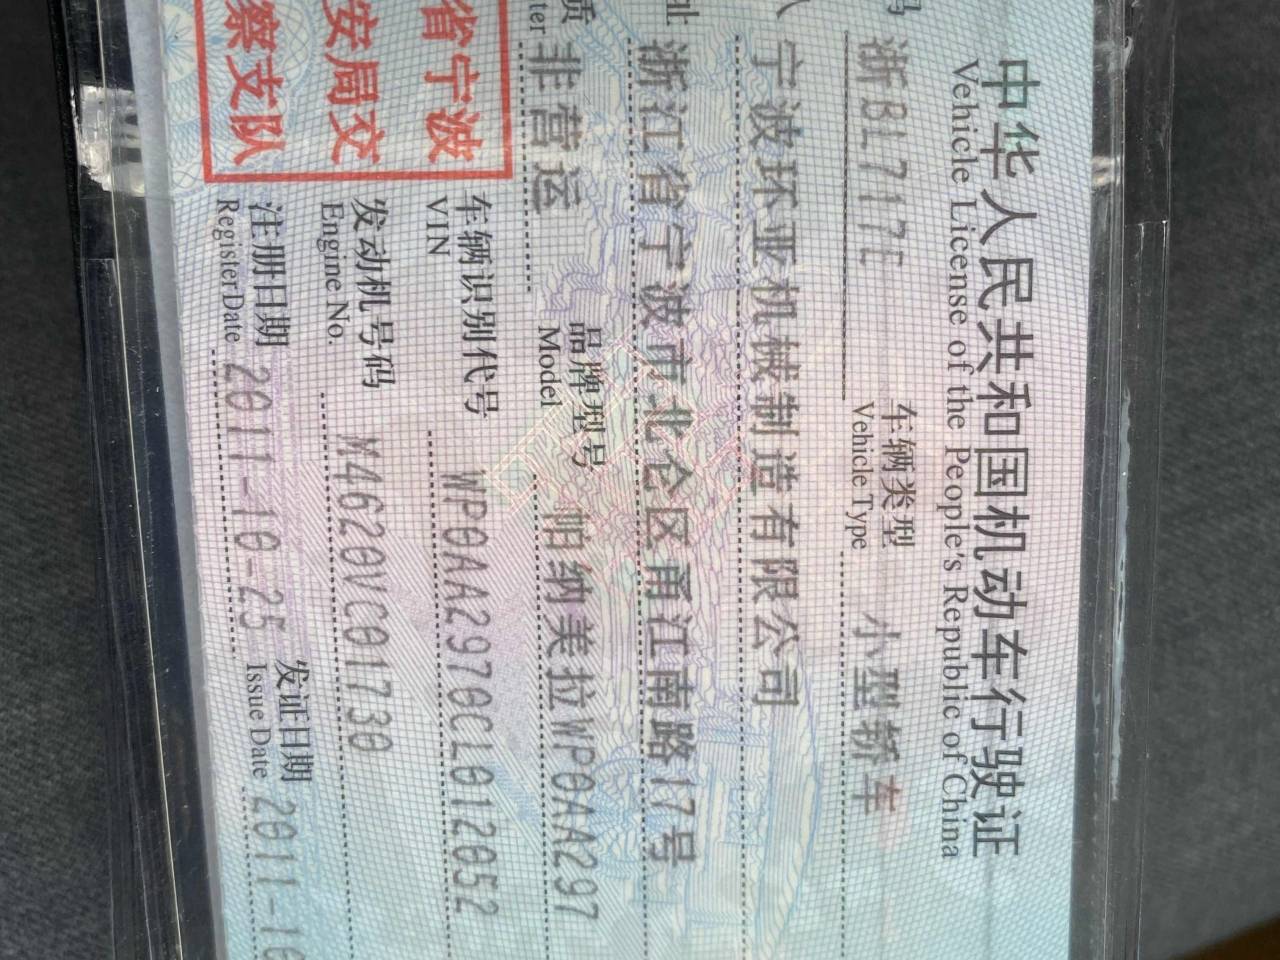 中华人民共和国机动车行驶证
Vehicle License of the People's Republic of China
浙BL717L 车辆类型 小型轿车
Vehicle Type
宁波环亚机械制造有限公司
址 浙江省宁波市北仑区甬江南路17号
质 非营运 品牌型号 帕纳美拉WP0AA297
ter Model
省宁波 车辆识别代号 WP0AA2970CL012052
VIN
安局交 发动机号码 M4620VC01730
Engine No.
察支队 注册日期 2011-10-25 发证日期 2011-10
Register Date Issue Date